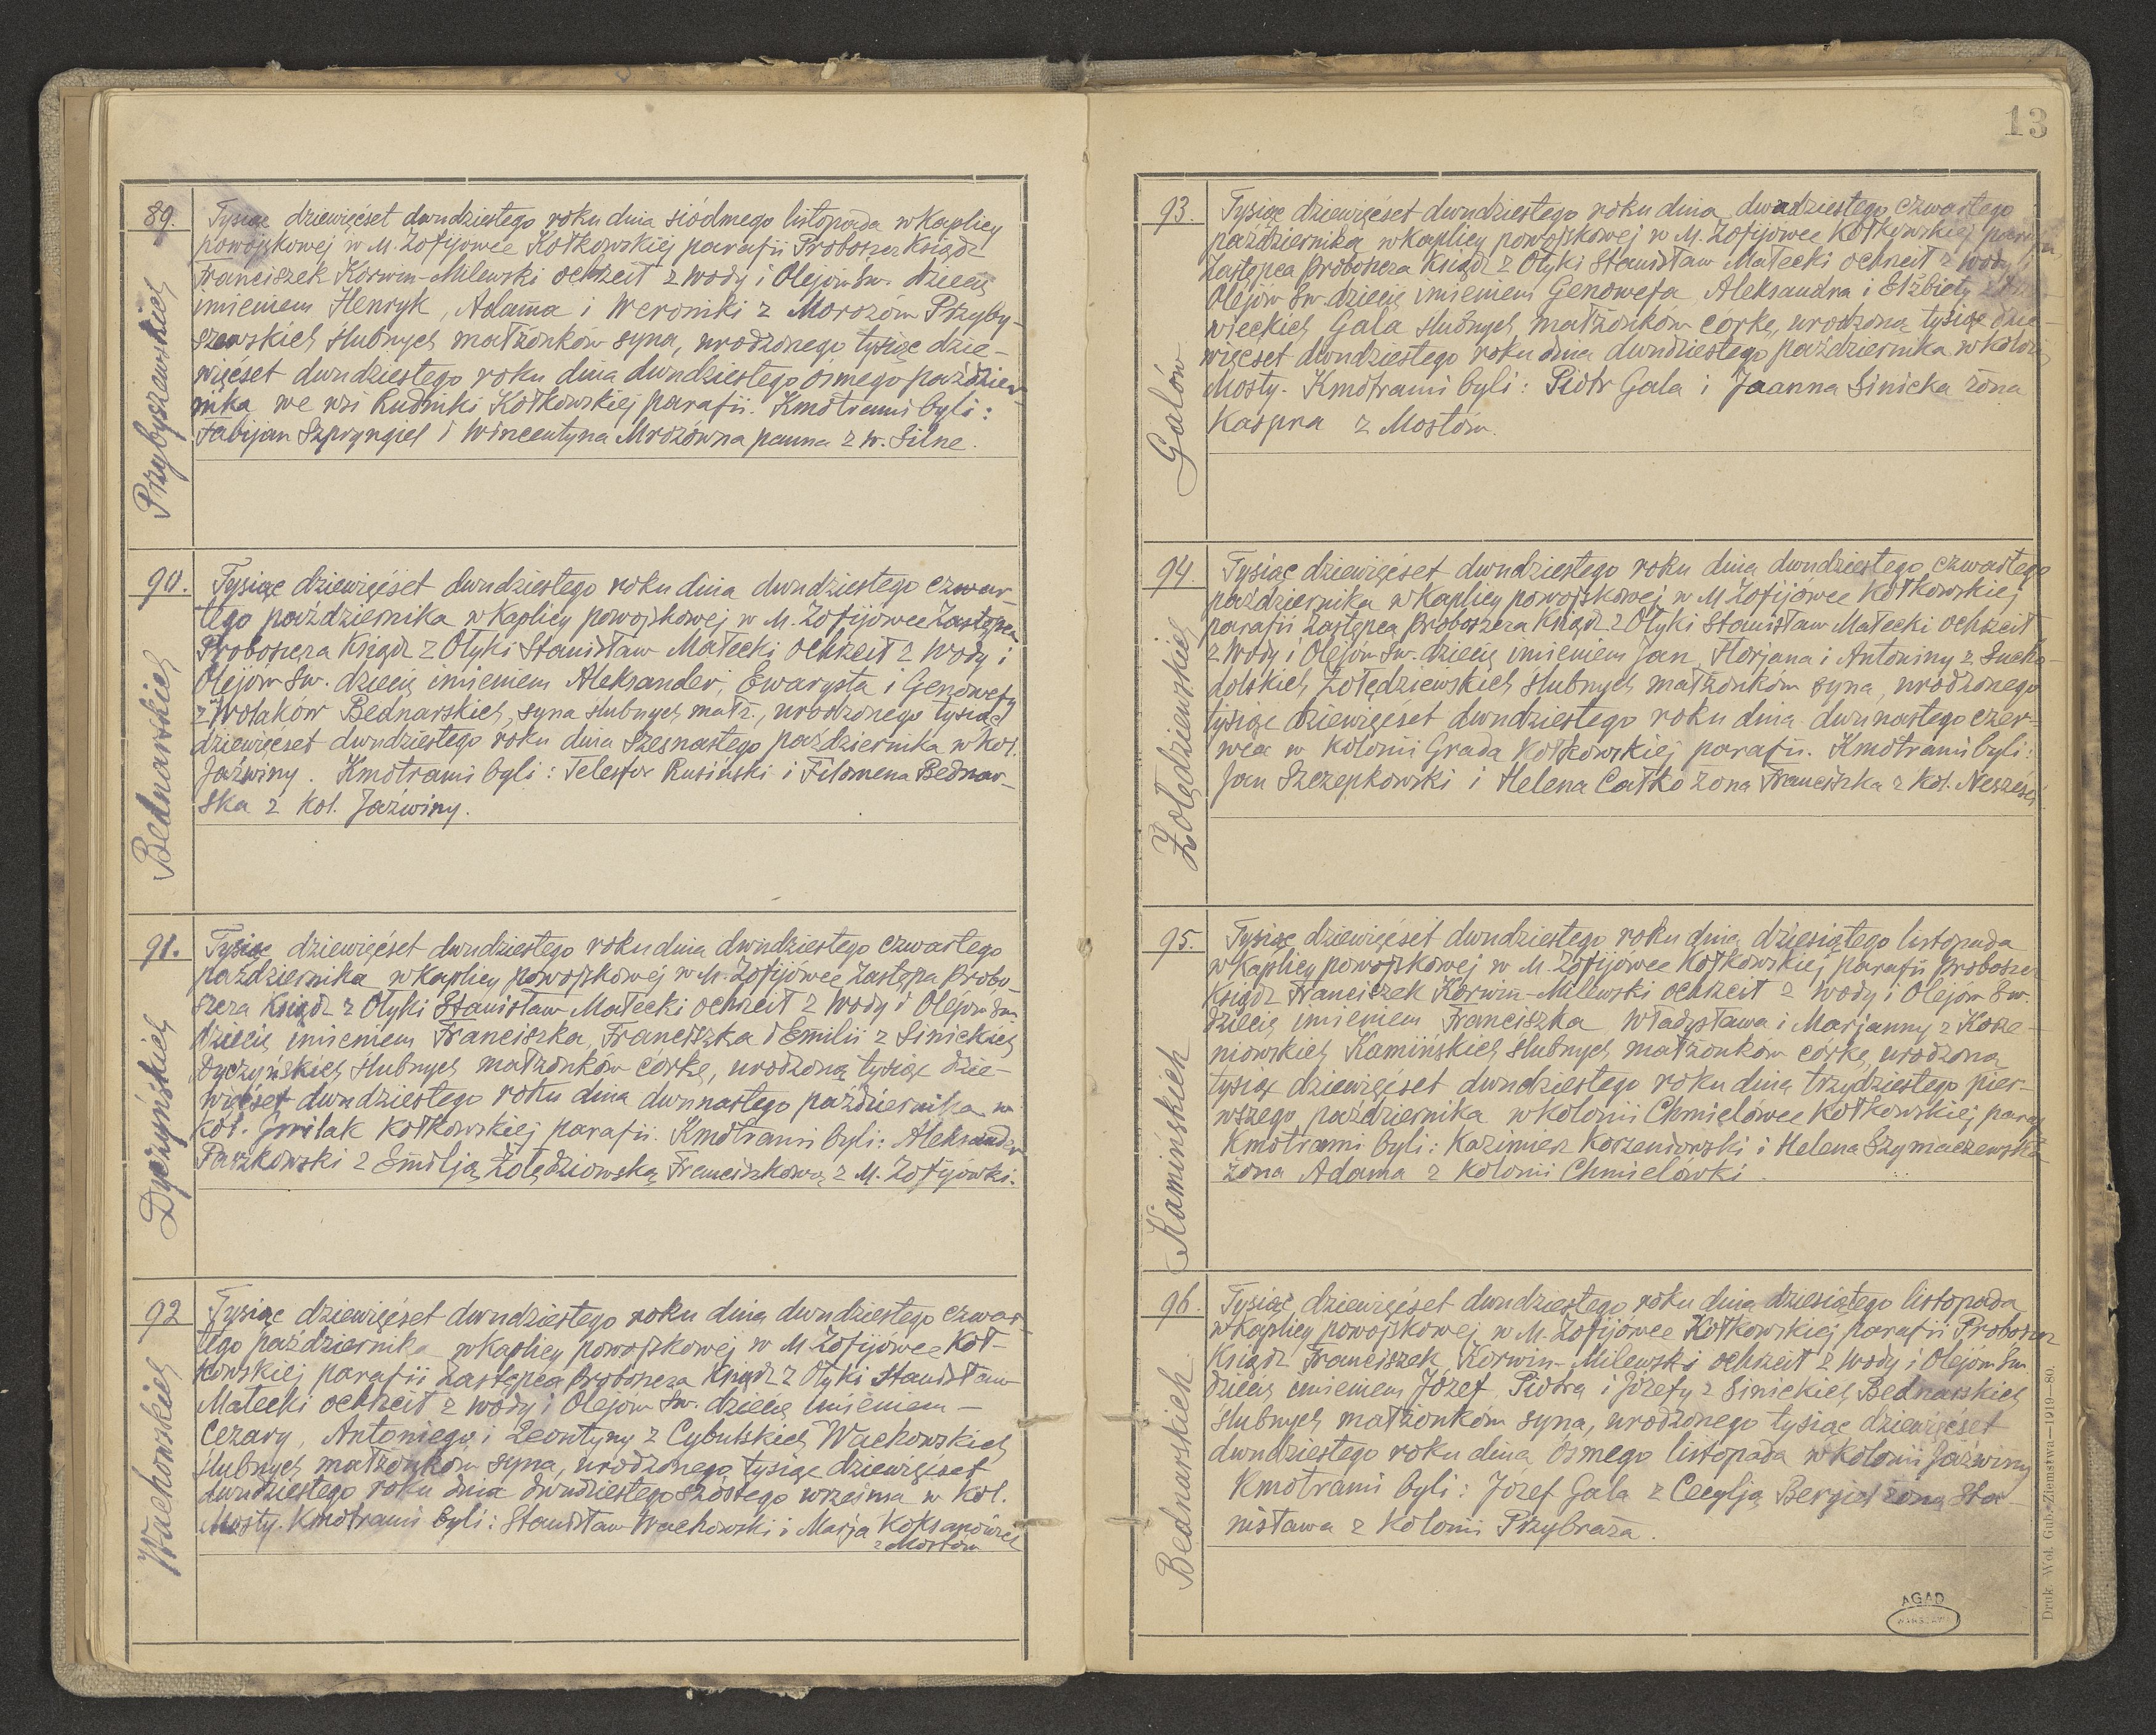 89.
Przybyszewskich
Tysiąc dziewięćset dwudziestego roku dnia siódmego listopada w Kaplicy
powojskowej w M. Zofijowce Kołkowskiej parafii Proboszcz Ksiądz
Franciszek Korwin-Milewski ochrzcił z wody i Olejów Św. dziecię
imieniem Henryk, Adama i Weroniki z Morozów Przyby-
szewskich ślubnych małżonków syna, urodzonego tysiąc dzie-
więćset dwudziestego roku dnia dwudziestego ósmego paździer-
nika we wsi Rudniki Kołkowskiej parafii. Kmotrami byli:
Fabijan Szpryngiel i Wincentyna Mrozówna panna z w. Silne.
90.
Bednarskich
Tysiąc dziewięćset dwudziestego roku dnia dwudziestego czwar-
tego października w Kaplicy powojskowej w M. Zofijowce Zastępca
Proboszcza Ksiądz z Ołyki Stanisław Małecki ochrzcił z wody i
Olejów Św. dziecię imieniem Aleksander, Ewarysta i Genowefy
z Wolaków Bednarskich, syna ślubnych małż., urodzonego tysiąc
dziewięćset dwudziestego roku dnia szesnastego października w kol.
Jaźwiny. Kmotrami byli: Telesfor Rusiński i Filomena Bednar-
ska z kol. Jaźwiny.
91.
Dyczyńskich
Tysiąc dziewięćset dwudziestego roku dnia dwudziestego czwartego
października w Kaplicy powojskowej w M. Zofijówce Zastępa Probo-
szcza Ksiądz z Ołyki Stanisław Małecki ochrzcił z wody i Olejów Św.
dziecię imieniem Franciszka, Franciszka i Emilii z Sinickich
Dyczyńskich ślubnych małżonków córkę, urodzoną tysiąc dzie-
więćset dwudziestego roku dnia dwunastego października w
kol. Kołkowskiej parafii. Kmotrami byli: Aleksander
Paszkowski z Emilją Żołędziowską Franciszkową z M. Zofijówki.
92
Wachowskich
Tysiąc dziewięćset dwudziestego roku dnia dwudziestego czwar-
tego października w Kaplicy powojskowej w M Zofijówce Koł-
kowskiej parafii Zastępca Proboszcza Ksiądz z Ołyki Stanisław
Małecki ochrzcił z wody i Olejów Św. dziecię imieniem —
Cezary, Antoniego i Leontyny z Cybulskich Wachowskich
ślubnych małżonków syna, urodzonego tysiąc dziewięćset
dwudziestego roku dnia dwudziestego szóstego września w kol.
Mosty. Kmotrami byli: Stanisław Wachowski i Marja
z Mostów
13
93.
Galów
Tysiąc dziewięćset dwudziestego roku dnia dwadziestego czwartego
października w Kaplicy powojskowej w M. Zofijowce Kołkowskiej parafii
Zastępca Proboszcza Ksiądz z Ołyki Stanisław Małecki ochrzcił z wody
Olejów Św. dziecię imieniem Genowefa, Aleksandra i Elżbiety
wieckich Gala ślubnych małżonków córkę, urodzoną tysiąc dzie-
więćset dwudziestego roku dnia dwudziestego października w kolonii
Mosty. Kmotrami byli: Piotr Gala i Jaanna Sinicka żona
Kaspra z Mostów.
94.
Żołędziewskich
Tysiąc dziewięćset dwudziestego roku dnia dwudziestego czwartego
października w Kaplicy powojskowej w M Zofijówce Kołkowskiej
parafii Zastępca Proboszcza Ksiądz z Ołyki Stanisław Małecki ochrzcił
z wody i Olejów Św. dziecię imieniem Jan, Florjana i Antoniny z Sucho-
dolskich Żołędziewskich ślubnych małżonków syna, urodzonego
tysiąc dziewięćset dwudziestego roku dnia dwunastego czer-
wca w kolonii Grada Kołkowskiej parafii. Kmotrami byli:
Jan Szczepkowski i Helena Całko żona Franciszka z kol.
95.
Kamińskich
Tysiąc dziewięćset dwudziestego roku dnia dziesiątego listopada
w Kaplicy powojskowej w M. Zofijówce Kołkowskiej parafii Proboszcz
Ksiądz Franciszek Korwin-Milewski ochrzcił z wody i Olejów Św.
dziecię imieniem Franciszka Władysława i Marjanny z Korze-
niowskich Kamińskich ślubnych małżonków córkę, urodzoną
tysiąc dziewięćset dwudziestego roku dnia trzydziestego pier-
wszego października w kolonii Chmielówce Kołkowskiej paraf.
Kmotrami byli: Kazimierz Korzeniowski i Helena Szymaczewska
żona Adama z kolonii Chmielówki.
96.
Bednarskich
Tysiąc dziewięćset dwudziestego roku dnia dziesiątego listopada
w Kaplicy powojskowej w M. Zofijówce Kołkowskiej parafii Proboszcz
Ksiądz Franciszek Korwin-Milewski ochrzcił z wody i Olejów Św.
dziecię imieniem Józef, Piotra i Józefy z Sinickich Bednarskich
ślubnych małżonków syna, urodzonego tysiąc dziewięćset
dwudziestego roku dnia ósmego listopada w kolonii Jaźwiny
Kmotrami byli: Józef Gala z Cecylją Bergiel żoną Sta-
nisława z kolonii Przybraża.
Druk. Wol. Gub. Ziemstwa—1919—80.
AGAD
WARSZAWA